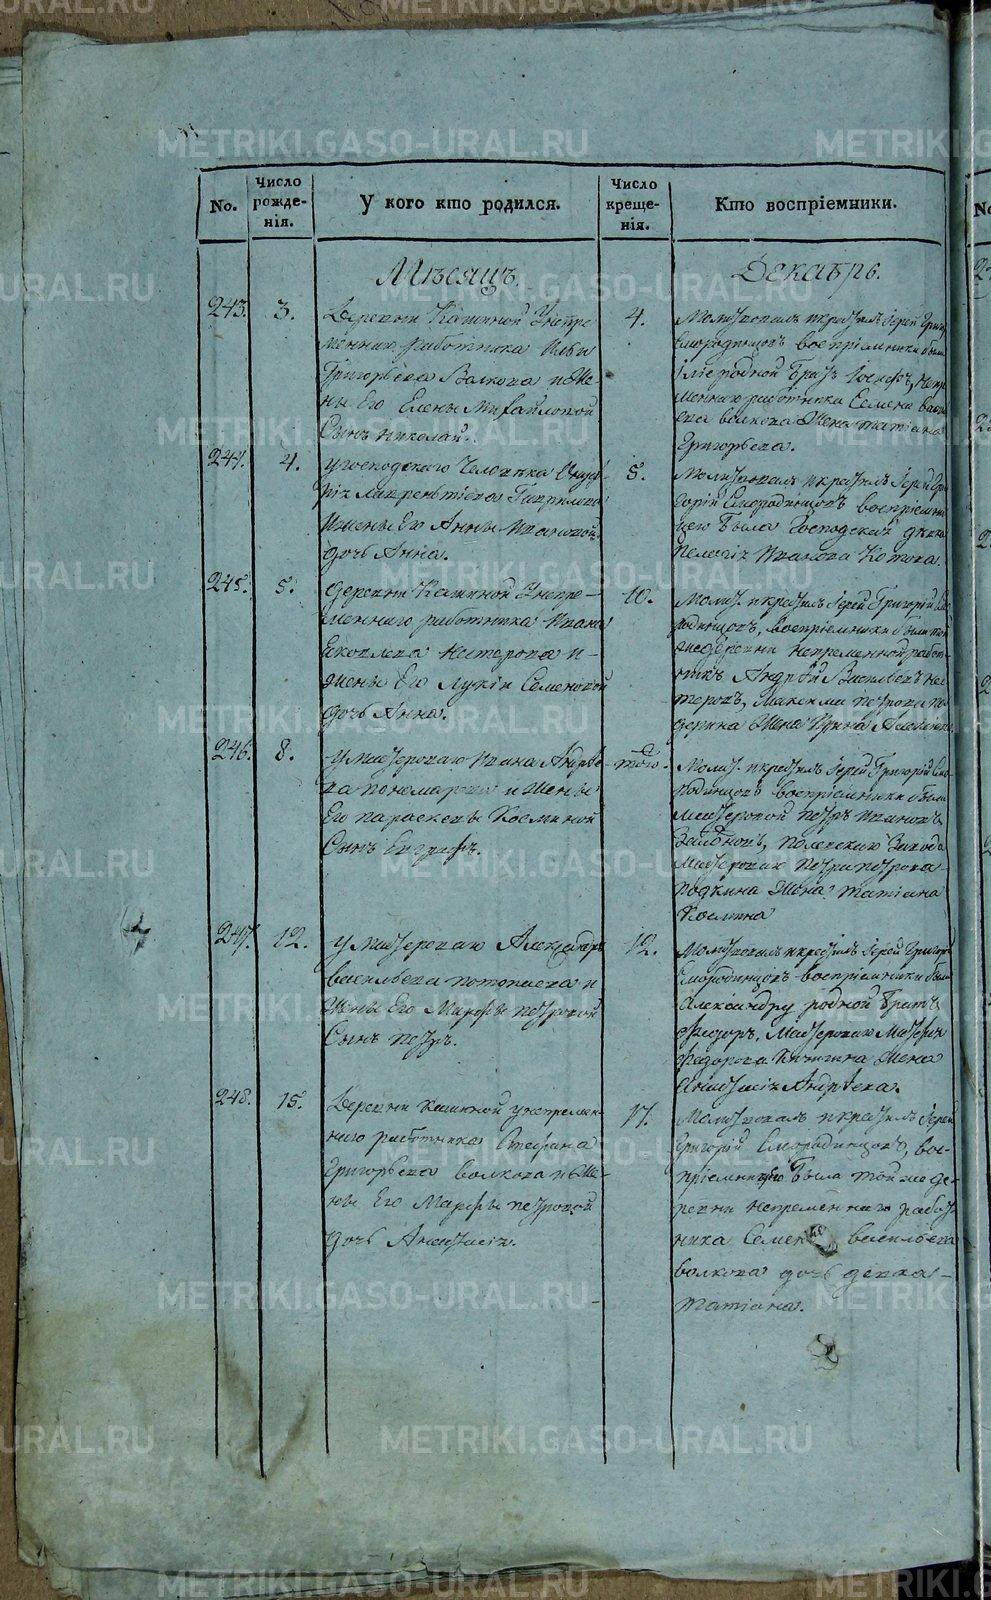 No.
Число рожде-нія.
У кого кто родился.
Число креще-нія.
Кто воспріемники.
Мѣсяцъ
Декабрь.
243.
3.
Деревни Кашиной у непре-
меннаго работника Ильи
Григорьева Волкова и же-
ны Его Елены Михайловой
Сынъ Николай.
4.
Молитвовалъ и крестилъ Іерей Григо
Смородинцовъ воспріемники были
родной братъ Іосифъ, непре
меннаго работника Семена Васи
ева волкова жена татіана
Григорьева.
244.
4.
у господскаго человека
Лаврентіева Гаврилова
и жены Его Анны Ивановой
дочь Анна.
5.
Молитвовалъ и крестилъ Іерей Гри
горій Смородинцовъ воспріемни
цею была Господская девка
Пелагія Иванова Котова.
245.
5.
деревни Кашиной у непре-
меннаго работника Ивана
Яковлева Нестерова и
жены Его Лукіи Семеновой
дочь Анна.
10.
Молит. и крестилъ Іерей Григорій Смо
родинцовъ, воспріемники были той
же деревни непременной работ-
никъ Андрей Васильевъ Не
стеровъ, Максима петрова
жена Ирина
246.
8.
у мастероваго Ивана Андрее
ва пономарева и жены
Его параскевы Косминой
Сынъ Евграфъ.
того.
Молит. и крестилъ Іерей Григорій Смо
родинцовъ воспріемники были
мастеровой петръ Ивановъ
полевскаго завода
мастероваго петра петрова
жена татіана
Космина
247.
12.
у мастероваго Александра
васильева потопаева и
жены Его Марфы петровой
Сынъ петръ.
12.
Молитвовалъ и крестилъ Іерей Григорій
Смородинцовъ воспріемники были
Александру родной братъ
Федоръ, Мастероваго
Федорова Кичигина жена
Анастасія Андреева.
248.
15.
Деревни Кашиной у непремен-
наго работника Стефана
Григорьева волкова и же-
ны Его Марфы петровой
дочь Анастасія.
17.
Молитвовалъ и крестилъ Іерей
Григорій Смородинцовъ, вос-
пріемницею была той же де-
ревни непременнаго работ-
ника Семена васильева
волкова дочь девка
татіана.
METRIKI.GASO-URAL.RU